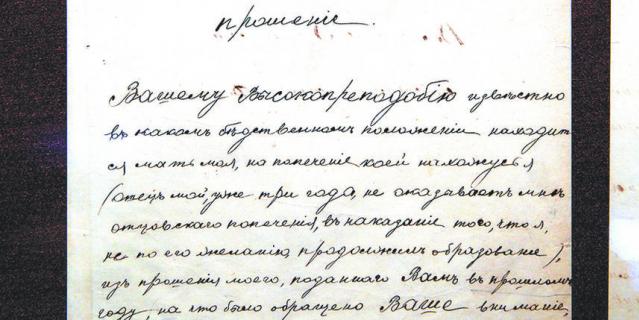 прошеніе.
Вашему Высокопреподобію извѣстно
въ какомъ бѣдственномъ положеніи находит-
ся мать моя, на попеченіе коей нахожусь я
(отецъ мой, уже три года, не оказываетъ мнѣ
отцовскаго попеченія, въ наказаніе того, что я,
не по его желанію, продолжилъ образованіе),
изъ прошенія моего, поданнаго Вамъ въ прошломъ
году, на что было обращено Ваше вниманіе,